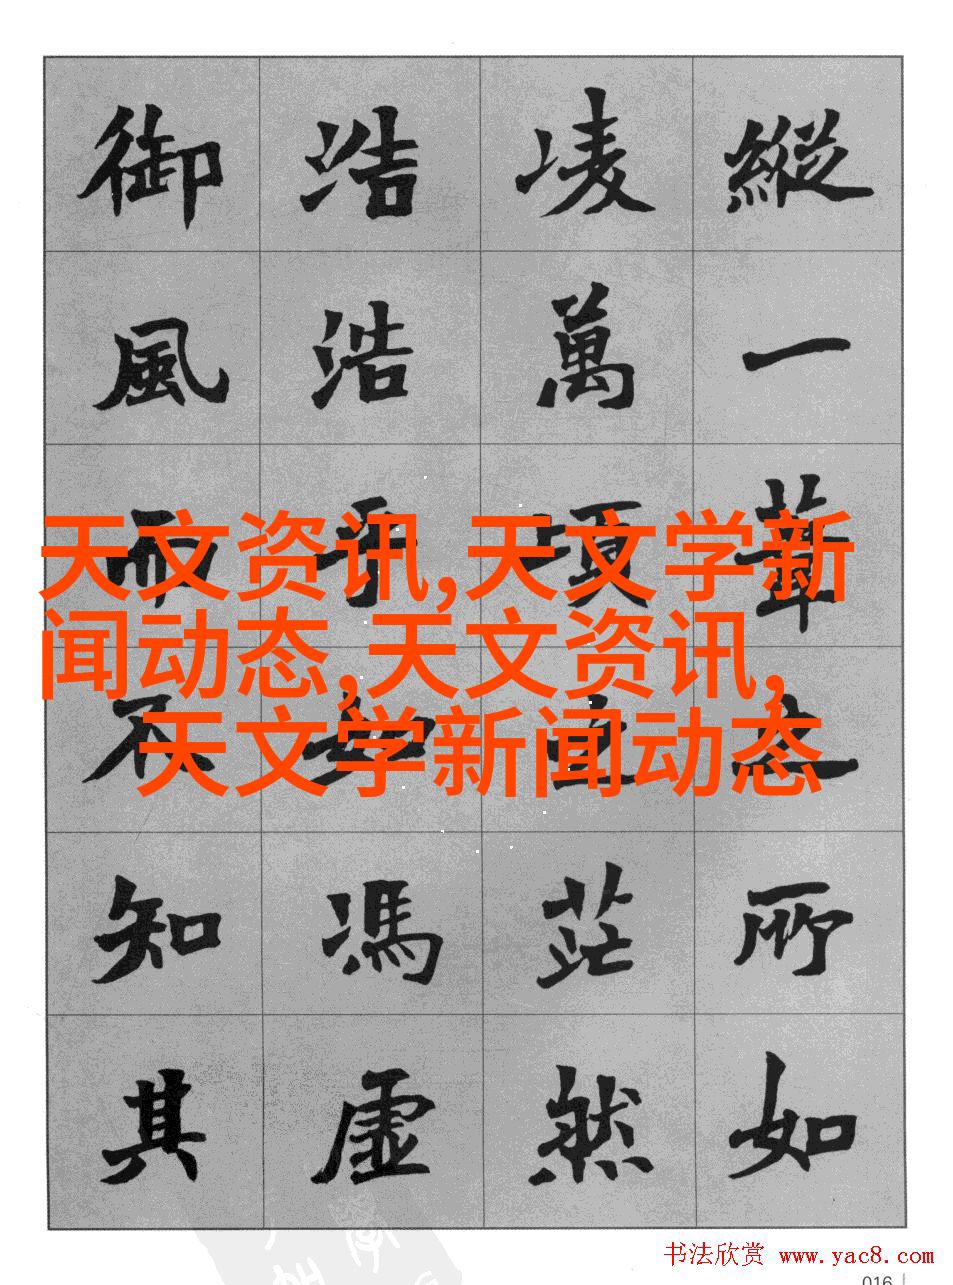 縱一葦之所如
凌萬頃之茫然
浩浩乎如馮虛
御風而不知其
天文资讯,天文学新
闻动态,天文资讯,
天文学新闻动态
书法欣赏 www.yac8.com
016